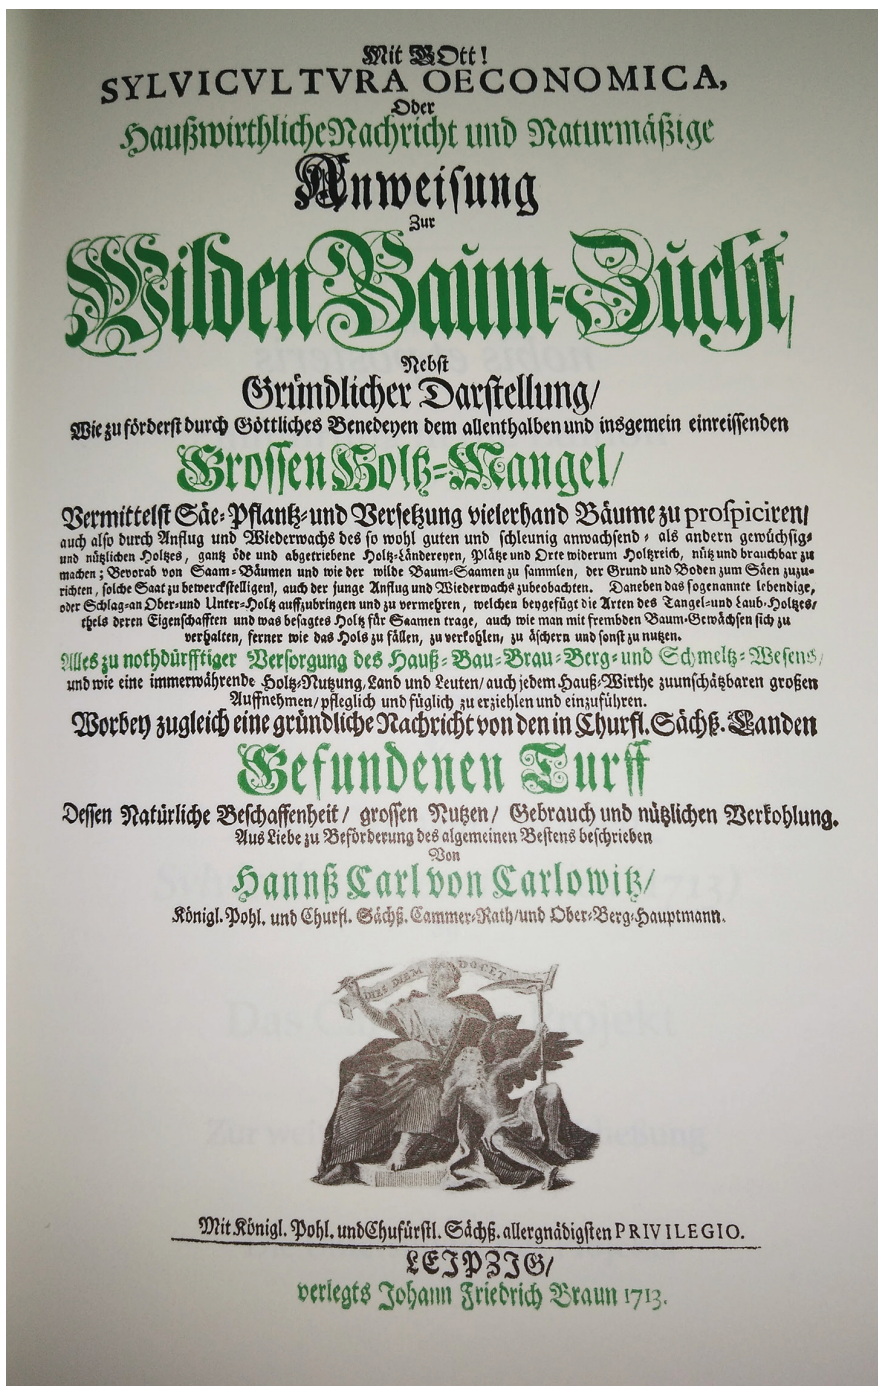 Mit GOtt!
SYLVICVLTVRA OECONOMICA,
Oder
Haußwirthliche Nachricht und Naturmäßige
Anweisung
Zur
Wilden Baum-Zucht,
Nebst
Gründlicher Darstellung/
Wie zu förderst durch Göttliches Benedeyen dem allenthalben und insgemein einreissenden
Grossen Holtz-Mangel/
Vermittelst Säe-Pflantz-und Versetzung vielerhand Bäume zu prospiciren/
auch also durch Anflug und Wiederwachs des so wohl guten und schleunig anwachsend- als andern gewüchsig-
und nützlichen Holtzes, gantz öde und abgetriebene Holtz-Ländereyen, Plätze und Orte widerum Holtzreich, nütz und brauchbar zu
machen; Bevorab von Saam-Bäumen und wie der wilde Baum-Saamen zu sammlen, der Grund und Boden zum Säen zuzu-
richten, solche Saat zu bewerckstelligen, auch der junge Anflug und Wiederwachs zubeobachten. Daneben das sogenannte lebendige,
oder Schlag-an Ober-und Unter-Holtz auffzubringen und zu vermehren, welchen beygefügt die Arten des Tangel-und Laub-Holtzes/
thels deren Eigenschafften und was besagtes Holtz für Saamen trage, auch wie man mit frembden Baum-Gewächsen sich zu
verhalten, ferner wie das Hols zu fällen, zu verkohlen, zu äschern und sonst zu nutzen.
Alles zu nothdürfftiger Versorgung des Hauß-Bau-Brau-Berg-und Schmeltz-Wesens/
und wie eine immerwährende Holtz-Nutzung, Land und Leuten/ auch jedem Hauß-Wirthe zuunschätzbaren großen
Auffnehmen/ pfleglich und füglich zu erziehlen und einzuführen.
Worbey zugleich eine gründliche Nachricht von den in Churfl. Sächß. Landen
Gefundenen Turff
Dessen Natürliche Beschaffenheit/ grossen Nutzen/ Gebrauch und nützlichen Verkohlung.
Aus Liebe zu Beförderung des algemeinen Bestens beschrieben
Von
Hannß Carl von Carlowitz/
Königl. Pohl. und Churfl. Sächß. Cammer-Rath/und Ober-Berg-Hauptmann.
DIES DIEM DOCET
Mit Königl. Pohl. und Chufürstl. Sächß. allergnädigsten PRIVILEGIO.
LEIPZIG/
verlegts Johann Friedrich Braun 1713.